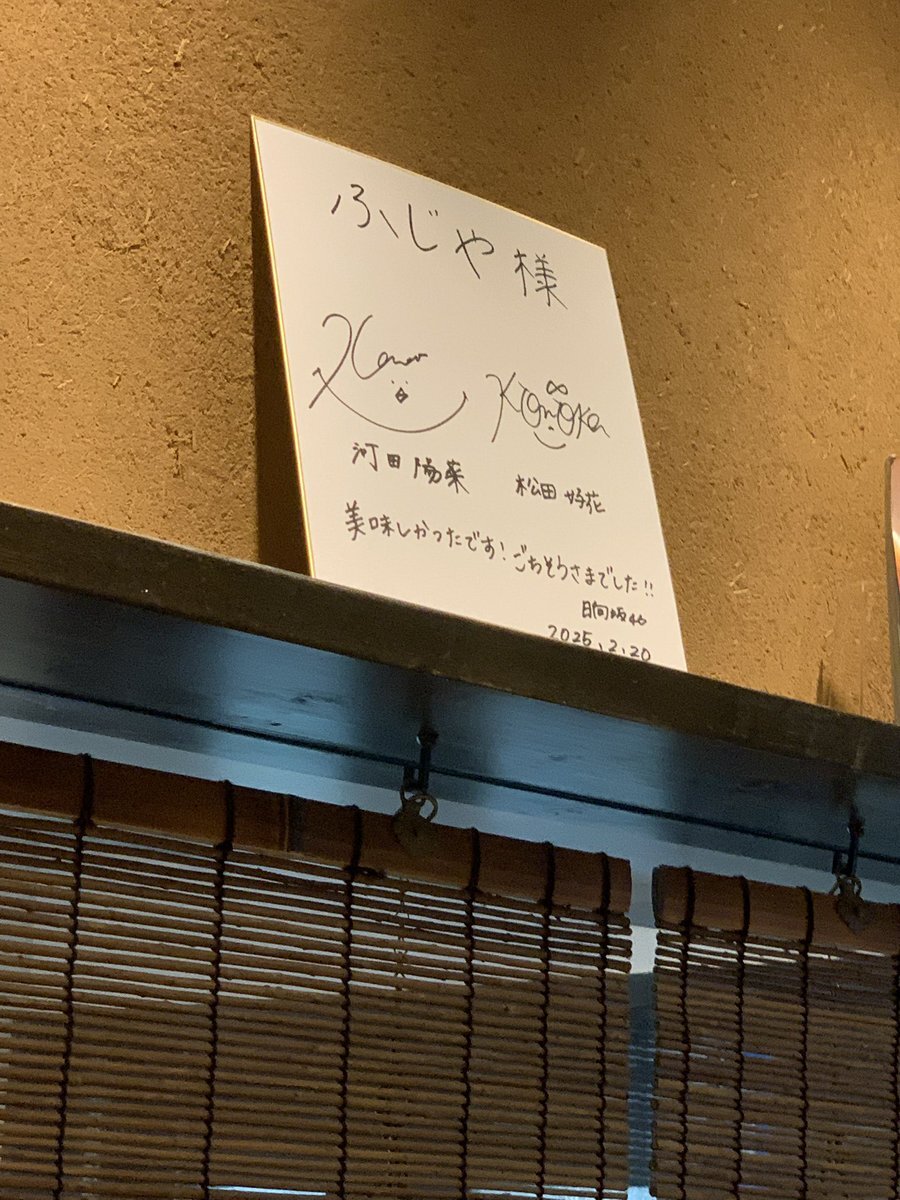 ふじや様
河田陽菜 松田好花
美味しかったです！ごちそうさまでした!!
日向坂46
2025.2.20